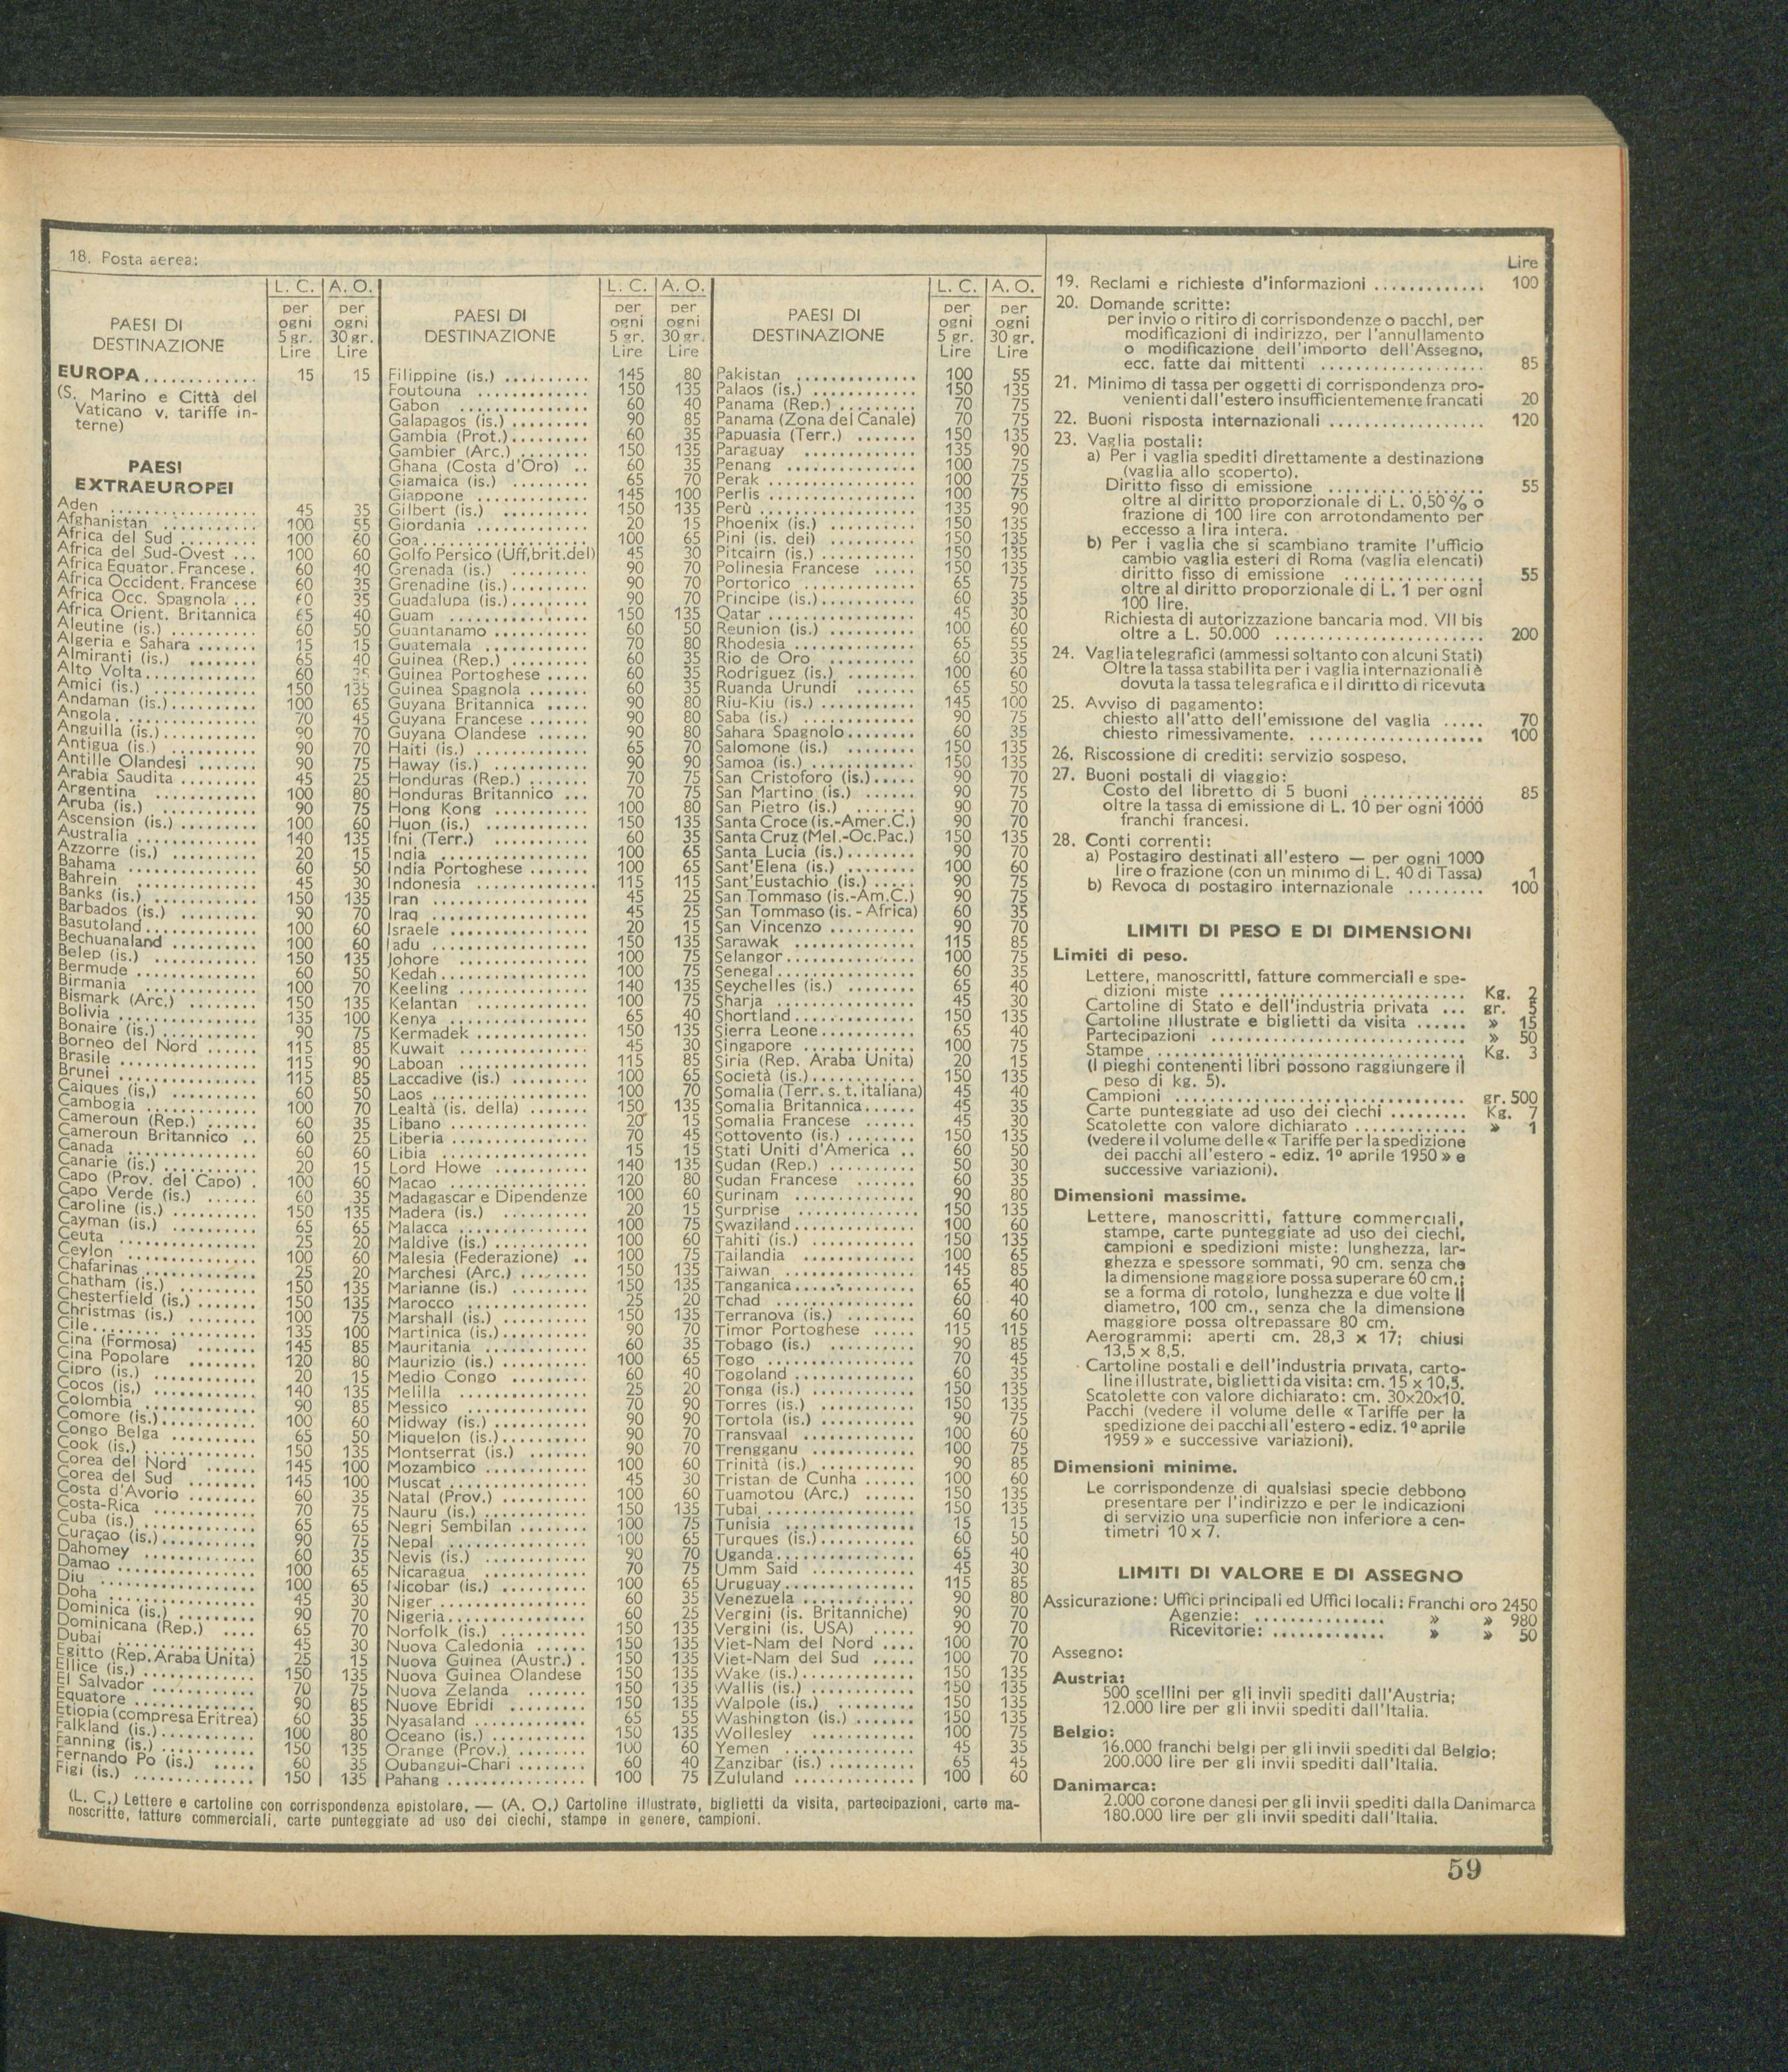 18. Posta aerea:
PAESI DI DESTINAZIONE
L. C. per ogni 5 gr. Lire
A. O. per ogni 30 gr. Lire
EUROPA ............ 15 15
(S. Marino e Città del
Vaticano v. tariffe in-
terne)
PAESI
EXTRAEUROPEI
Aden ........ 45 35
Afghanistan ........ 100 55
Africa del Sud ........ 100 60
Africa del Sud-Ovest ... 100 60
Africa Equator. Francese . 60 40
Africa Occident. Francese 60 35
Africa Occ. Spagnola ... 60 35
Africa Orient. Britannica 65 40
Aleutine (is.) ........ 60 50
Algeria e Sahara ....... 15 15
Almiranti (is.) ........ 65 40
Alto Volta ........ 60 35
Amici (is.) ........ 150 135
Andaman (is.) ........ 100 65
Angola ........ 70 45
Anguilla (is.) ........ 90 70
Antigua (is.) ........ 90 70
Antille Olandesi ....... 90 75
Arabia Saudita ........ 45 25
Argentina ........ 100 80
Aruba (is.) ........ 90 75
Ascension (is.) ........ 100 60
Australia ........ 140 135
Azzorre (is.) ........ 20 15
Bahama ........ 60 50
Bahrein ........ 45 30
Banks (is.) ........ 150 135
Barbados (is.) ........ 90 70
Basutoland ........ 100 60
Bechuanaland ........ 100 60
Belep (is.) ........ 150 135
Bermude ........ 60 50
Birmania ........ 100 70
Bismark (Arc.) ........ 150 135
Bolivia ........ 135 100
Bonaire (is.) ........ 90 75
Borneo del Nord ...... 115 85
Brasile ........ 115 90
Brunei ........ 115 85
Caiques (is,) ........ 60 50
Cambogia ........ 100 70
Cameroun (Rep.) ...... 60 35
Cameroun Britannico .. 60 25
Canada ........ 60 60
Canarie (is.) ........ 20 15
Capo (Prov. del Capo) . 100 60
Capo Verde (is.) ...... 60 35
Caroline (is.) ........ 150 135
Cayman (is.) ........ 65 65
Ceuta ........ 25 20
Ceylon ........ 100 60
Chafarinas ........ 25 20
Chatham (is.) ........ 150 135
Chesterfield (is.) ....... 150 135
Christmas (is.) ........ 100 75
Cile ........ 135 100
Cina (Formosa) ....... 145 85
Cina Popolare ........ 120 80
Cipro (is.) ........ 20 15
Cocos (is,) ........ 140 135
Colombia ........ 90 85
Comore (is.) ........ 100 60
Congo Belga ........ 65 50
Cook (is.) ........ 150 135
Corea del Nord ...... 145 100
Corea del Sud ........ 145 100
Costa d'Avorio ........ 60 35
Costa-Rica ........ 70 75
Cuba (is.) ........ 65 65
Curaçao (is.) ........ 90 75
Dahomey ........ 60 35
Damao ........ 100 65
Diu ........ 100 65
Doha ........ 45 30
Dominica (is.) ........ 90 70
Dominicana (Rep.) .... 65 70
Dubai ........ 45 30
Egitto (Rep. Araba Unita) 25 15
Ellice (is.) ........ 150 135
El Salvador ........ 70 75
Equatore ........ 90 85
Etiopia (compresa Eritrea) 60 35
Falkland (is.) ........ 100 80
Fanning (is.) ........ 150 135
Fernando Po (is.) ..... 60 35
Figi (is.) ........ 150 135
PAESI DI DESTINAZIONE
L. C. per ogni 5 gr. Lire
A. O. per ogni 30 gr. Lire
Filippine (is.) ........ 145 80
Foutouna ........ 150 135
Gabon ........ 60 40
Galapagos (is.) ........ 90 85
Gambia (Prot.) ........ 60 35
Gambier (Arc.) ........ 150 135
Ghana (Costa d'Oro) .. 60 35
Giamaica (is.) ........ 65 70
Giappone ........ 145 100
Gilbert (is.) ........ 150 135
Giordania ........ 20 15
Goa ........ 100 65
Golfo Persico (Uff. brit. del) 45 30
Grenada (is.) ........ 90 70
Grenadine (is.) ........ 90 70
Guadalupa (is.) ........ 90 70
Guam ........ 150 135
Guantanamo ........ 60 50
Guatemala ........ 70 80
Guinea (Rep.) ........ 60 35
Guinea Portoghese ..... 60 35
Guinea Spagnola ....... 60 35
Guyana Britannica ..... 90 80
Guyana Francese ....... 90 80
Guyana Olandese ...... 90 80
Haiti (is.) ........ 65 70
Haway (is.) ........ 90 90
Honduras (Rep.) ....... 70 75
Honduras Britannico ... 70 75
Hong Kong ........ 100 80
Huon (is.) ........ 150 135
Ifni (Terr.) ........ 60 35
India ........ 100 65
India Portoghese ....... 100 65
Indonesia ........ 115 115
Iran ........ 45 25
Iraq ........ 45 25
Israele ........ 20 15
Iadu ........ 150 135
Johore ........ 100 75
Kedah ........ 100 75
Keeling ........ 140 135
Kelantan ........ 100 75
Kenya ........ 65 40
Kermadek ........ 150 135
Kuwait ........ 45 30
Laboan ........ 115 85
Laccadive (is.) ........ 100 65
Laos ........ 100 70
Lealtà (is. della) ....... 150 135
Libano ........ 20 15
Liberia ........ 70 45
Libia ........ 15 15
Lord Howe ........ 140 135
Macao ........ 120 80
Madagascar e Dipendenze 100 60
Madera (is.) ........ 20 15
Malacca ........ 100 75
Maldive (is.) ........ 100 60
Malesia (Federazione) .. 100 75
Marchesi (Arc.) ........ 150 135
Marianne (is.) ........ 150 135
Marocco ........ 25 20
Marshall (is.) ........ 150 135
Martinica (is.) ........ 90 70
Mauritania ........ 60 35
Maurizio (is.) ........ 100 65
Medio Congo ........ 60 40
Melilla ........ 25 20
Messico ........ 70 90
Midway (is.) ........ 90 90
Miquelon (is.) ........ 90 70
Montserrat (is.) ....... 90 70
Mozambico ........ 100 60
Muscat ........ 45 30
Natal (Prov.) ........ 100 60
Nauru (is.) ........ 150 135
Negri Sembilan ........ 100 75
Nepal ........ 100 65
Nevis (is.) ........ 90 70
Nicaragua ........ 70 75
Nicobar (is.) ........ 100 65
Niger ........ 60 35
Nigeria ........ 60 25
Norfolk (is.) ........ 150 135
Nuova Caledonia ...... 150 135
Nuova Guinea (Austr.) . 150 135
Nuova Guinea Olandese 150 135
Nuova Zelanda ....... 150 135
Nuove Ebridi ........ 150 135
Nyasaland ........ 65 55
Oceano (is.) ........ 150 135
Orange (Prov.) ........ 100 60
Oubangui-Chari ........ 60 40
Pahang ........ 100 75
PAESI DI DESTINAZIONE
L. C. per ogni 5 gr. Lire
A. O. per ogni 30 gr. Lire
Pakistan ........ 100 55
Palaos (is.) ........ 150 135
Panama (Rep.) ........ 70 75
Panama (Zona del Canale) 70 75
Papuasia (Terr.) ....... 150 135
Paraguay ........ 135 90
Penang ........ 100 75
Perak ........ 100 75
Perlis ........ 100 75
Perù ........ 135 90
Phoenix (is.) ........ 150 135
Pini (is. dei) ........ 150 135
Pitcairn (is.) ........ 150 135
Polinesia Francese ..... 150 135
Portorico ........ 65 75
Principe (is.) ........ 60 35
Qatar ........ 45 30
Reunion (is.) ........ 100 60
Rhodesia ........ 65 55
Rio de Oro ........ 60 35
Rodriguez (is.) ........ 100 60
Ruanda Urundi ....... 65 50
Riu-Kiu (is.) ........ 145 100
Saba (is.) ........ 90 75
Sahara Spagnolo ........ 60 35
Salomone (is.) ........ 150 135
Samoa (is.) ........ 150 135
San Cristoforo (is.) ..... 90 70
San Martino (is.) ...... 90 70
San Pietro (is.) ....... 90 70
Santa Croce (is.-Amer.C.) 90 70
Santa Cruz (Mel.-Oc.Pac.) 150 135
Santa Lucia (is.) ........ 90 70
Sant'Elena (is.) ........ 100 60
Sant'Eustachio (is.) ..... 90 75
San Tommaso (is.-Am.C.) 90 75
San Tommaso (is. - Africa) 60 35
San Vincenzo ........ 90 70
Sarawak ........ 115 85
Selangor ........ 100 75
Senegal ........ 60 35
Seychelles (is.) ........ 65 40
Sharja ........ 45 30
Shortland ........ 150 135
Sierra Leone ........ 65 40
Singapore ........ 100 75
Siria (Rep. Araba Unita) 20 15
Società (is.) ........ 150 135
Somalia (Terr. s. t. italiana) 45 40
Somalia Britannica ...... 45 35
Somalia Francese ...... 45 30
Sottovento (is.) ........ 150 135
Stati Uniti d'America .. 60 50
Sudan (Rep.) ........ 50 30
Sudan Francese ........ 60 35
Surinam ........ 90 80
Surprise ........ 150 135
Swaziland ........ 100 60
Tahiti (is.) ........ 150 135
Tailandia ........ 100 65
Taiwan ........ 145 85
Tanganica ........ 65 40
Tchad ........ 60 40
Terranova (is.) ........ 60 60
Timor Portoghese ..... 115 115
Tobago (is.) ........ 90 85
Togo ........ 70 45
Togoland ........ 60 35
Tonga (is.) ........ 150 135
Torres (is.) ........ 150 135
Tortola (is.) ........ 90 75
Transvaal ........ 100 60
Trengganu ........ 100 75
Trinità (is.) ........ 90 85
Tristan de Cunha ...... 100 60
Tuamotou (Arc.) ...... 150 135
Tubai ........ 150 135
Tunisia ........ 15 15
Turques (is.) ........ 60 50
Uganda ........ 65 40
Umm Said ........ 45 30
Uruguay ........ 115 85
Venezuela ........ 90 80
Vergini (is. Britanniche) 90 70
Vergini (is. USA) ..... 90 70
Viet-Nam del Nord .... 100 70
Viet-Nam del Sud ..... 100 70
Wake (is.) ........ 150 135
Wallis (is.) ........ 150 135
Walpole (is.) ........ 150 135
Washington (is.) ....... 150 135
Wollesley ........ 100 75
Yemen ........ 45 35
Zanzibar (is.) ........ 65 45
Zululand ........ 100 60
(L. C.) Lettere e cartoline con corrispondenza epistolare. — (A. O.) Cartoline illustrate, biglietti da visita, partecipazioni, carte ma-
noscritte, fatture commerciali, carte punteggiate ad uso dei ciechi, stampe in genere, campioni.
Lire
19. Reclami e richieste d'informazioni ............ 100
20. Domande scritte:
per invio o ritiro di corrispondenze o pacchi, per
modificazioni di indirizzo, per l'annullamento
o modificazione dell'importo dell'Assegno,
ecc. fatte dai mittenti .................. 85
21. Minimo di tassa per oggetti di corrispondenza pro-
venienti dall'estero insufficientemente francati 20
22. Buoni risposta internazionali ................. 120
23. Vaglia postali:
a) Per i vaglia spediti direttamente a destinazione
(vaglia allo scoperto).
Diritto fisso di emissione ................. 55
oltre al diritto proporzionale di L. 0,50 % o
frazione di 100 lire con arrotondamento per
eccesso a lira intera.
b) Per i vaglia che si scambiano tramite l'ufficio
cambio vaglia esteri di Roma (vaglia elencati)
diritto fisso di emissione ............... 55
oltre al diritto proporzionale di L. 1 per ogni
100 lire.
Richiesta di autorizzazione bancaria mod. VII bis
oltre a L. 50.000 ....................... 200
24. Vaglia telegrafici (ammessi soltanto con alcuni Stati)
Oltre la tassa stabilita per i vaglia internazionali è
dovuta la tassa telegrafica e il diritto di ricevuta
25. Avviso di pagamento:
chiesto all'atto dell'emissione del vaglia ..... 70
chiesto rimessivamente. ................... 100
26. Riscossione di crediti: servizio sospeso.
27. Buoni postali di viaggio:
Costo del libretto di 5 buoni ............. 85
oltre la tassa di emissione di L. 10 per ogni 1000
franchi francesi.
28. Conti correnti:
a) Postagiro destinati all'estero — per ogni 1000
lire o frazione (con un minimo di L. 40 di Tassa) 1
b) Revoca di postagiro internazionale ......... 100
LIMITI DI PESO E DI DIMENSIONI
Limiti di peso.
Lettere, manoscritti, fatture commerciali e spe-
dizioni miste ........................... Kg. 2
Cartoline di Stato e dell'industria privata ... gr. 5
Cartoline illustrate e biglietti da visita ...... » 15
Partecipazioni ............................ » 50
Stampe .................................. Kg. 3
(I pieghi contenenti libri possono raggiungere il
peso di kg. 5).
Campioni ................................ gr. 500
Carte punteggiate ad uso dei ciechi ......... Kg. 7
Scatolette con valore dichiarato ............ » 1
(vedere il volume delle « Tariffe per la spedizione
dei pacchi all'estero - ediz. 1º aprile 1950 » e
successive variazioni).
Dimensioni massime.
Lettere, manoscritti, fatture commerciali,
stampe, carte punteggiate ad uso dei ciechi,
campioni e spedizioni miste: lunghezza, lar-
ghezza e spessore sommati, 90 cm. senza che
la dimensione maggiore possa superare 60 cm.;
se a forma di rotolo, lunghezza e due volte il
diametro, 100 cm., senza che la dimensione
maggiore possa oltrepassare 80 cm.
Aerogrammi: aperti cm. 28,3 x 17; chiusi
13,5 x 8,5.
Cartoline postali e dell'industria privata, carto-
line illustrate, biglietti da visita: cm. 15 x 10,5.
Scatolette con valore dichiarato: cm. 30x20x10.
Pacchi (vedere il volume delle « Tariffe per la
spedizione dei pacchi all'estero - ediz. 1º aprile
1959 » e successive variazioni).
Dimensioni minime.
Le corrispondenze di qualsiasi specie debbono
presentare per l'indirizzo e per le indicazioni
di servizio una superficie non inferiore a cen-
timetri 10 x 7.
LIMITI DI VALORE E DI ASSEGNO
Assicurazione: Uffici principali ed Uffici locali: Franchi oro 2450
Agenzie: ............... » » 980
Ricevitorie: ............. » » 50
Assegno:
Austria:
500 scellini per gli invii spediti dall'Austria;
12.000 lire per gli invii spediti dall'Italia.
Belgio:
16.000 franchi belgi per gli invii spediti dal Belgio;
200.000 lire per gli invii spediti dall'Italia.
Danimarca:
2.000 corone danesi per gli invii spediti dalla Danimarca
180.000 lire per gli invii spediti dall'Italia.
59